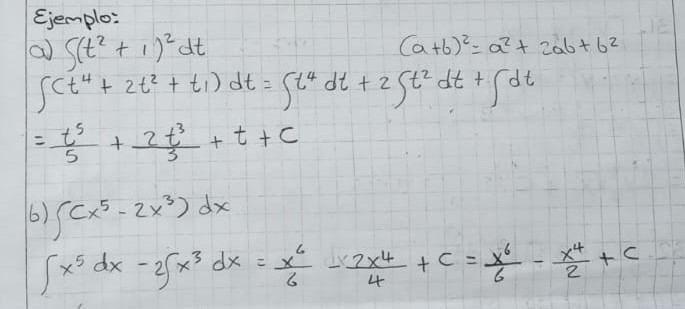 Ejemplo:
a) ∫(t² + 1)² dt (a+b)² = a² + 2ab + b²
∫(t⁴ + 2t² + t1) dt = ∫t⁴ dt + 2∫t² dt + ∫dt
= t⁵/5 + 2t³/3 + t + C
b) ∫(x⁵ - 2x³) dx
∫x⁵ dx - 2∫x³ dx = x⁶/6 - 2x⁴/4 + C = x⁶/6 - x⁴/2 + C